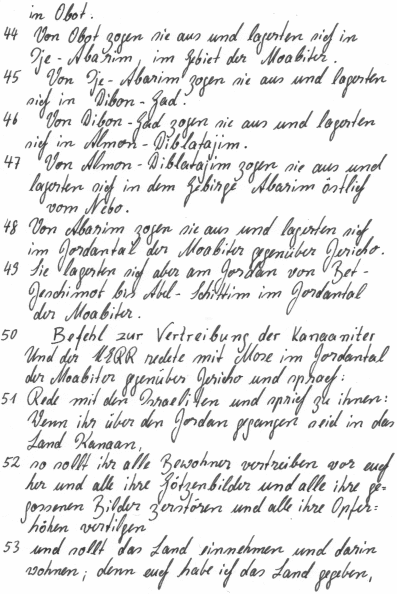 in Obot.
44 Von Obot zogen sie aus und lagerten sich in
Ije-Abarim, im Gebiet der Moabiter.
45 Von Ije-Abarim zogen sie aus und lagerten
sich in Dibon-Gad.
46 Von Dibon-Gad zogen sie aus und lagerten
sich in Almon-Diblatajim.
47 Von Almon-Diblatajim zogen sie aus und
lagerten sich in dem Gebirge Abarim östlich
vom Nebo.
48 Von Abarim zogen sie aus und lagerten sich
im Jordantal der Moabiter gegenüber Jericho.
49 Sie lagerten sich aber am Jordan von Bet-
Jeschimot bis Abel-Schittim im Jordantal
der Moabiter.
50 Befehl zur Vertreibung der Kanaaniter
Und der HERR redete mit Mose im Jordantal
der Moabiter gegenüber Jericho und sprach:
51 Rede mit den Israeliten und sprich zu ihnen:
Wenn ihr über den Jordan gegangen seid in das
Land Kanaan,
52 so sollt ihr alle Bewohner vertreiben vor euch
her und alle ihre Götzenbilder und alle ihre ge-
gossenen Bilder zerstören und alle ihre Opfer=
höhen vertilgen
53 und sollt das Land einnehmen und darin
wohnen; denn euch habe ich das Land gegeben,